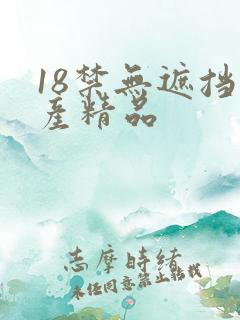 18禁無遮挡
產精品
志摩時緒
未经同意禁止転載